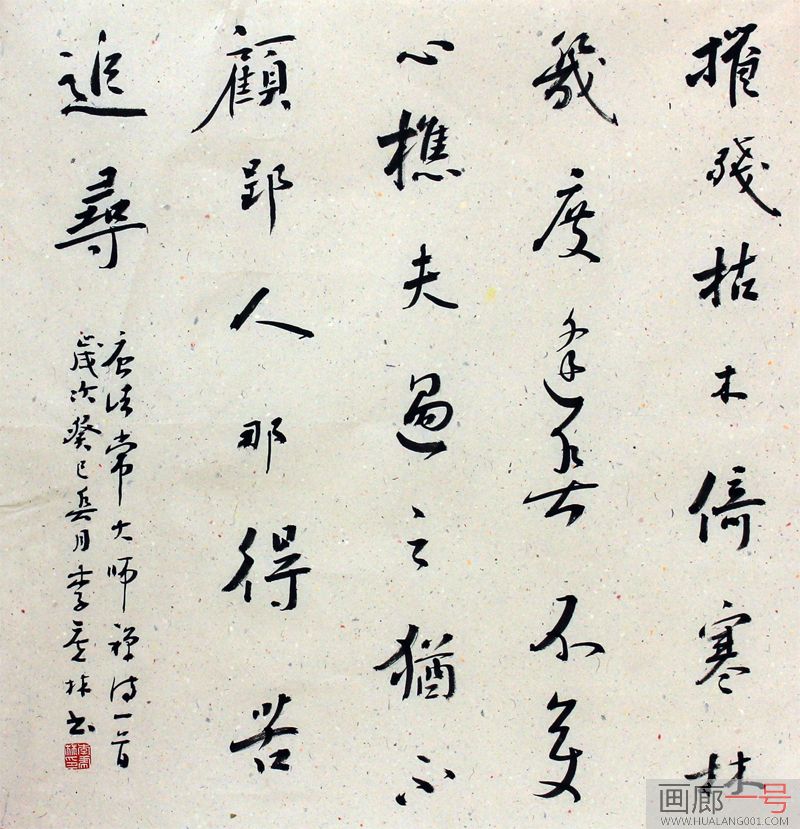 摧残枯木倚寒林
幾度逢春不变
心樵夫遇之猶不
顧郢人那得苦
追尋
唐法常大师禅诗一首
歲次癸巳 月李 林书
画廊一号
WWW.HUALANG001.COM